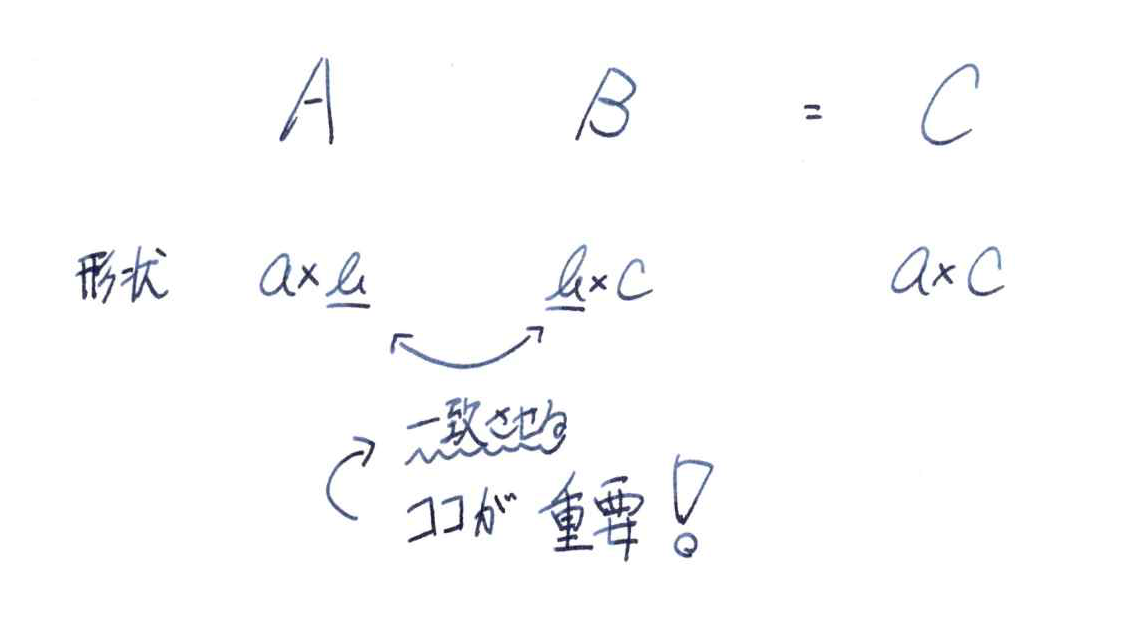 A B = C
形状 a×b b×c a×c
一致させる
ココが重要!